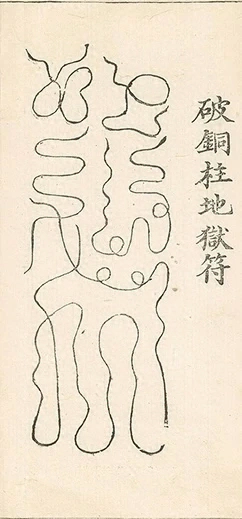 破銅柱地獄符